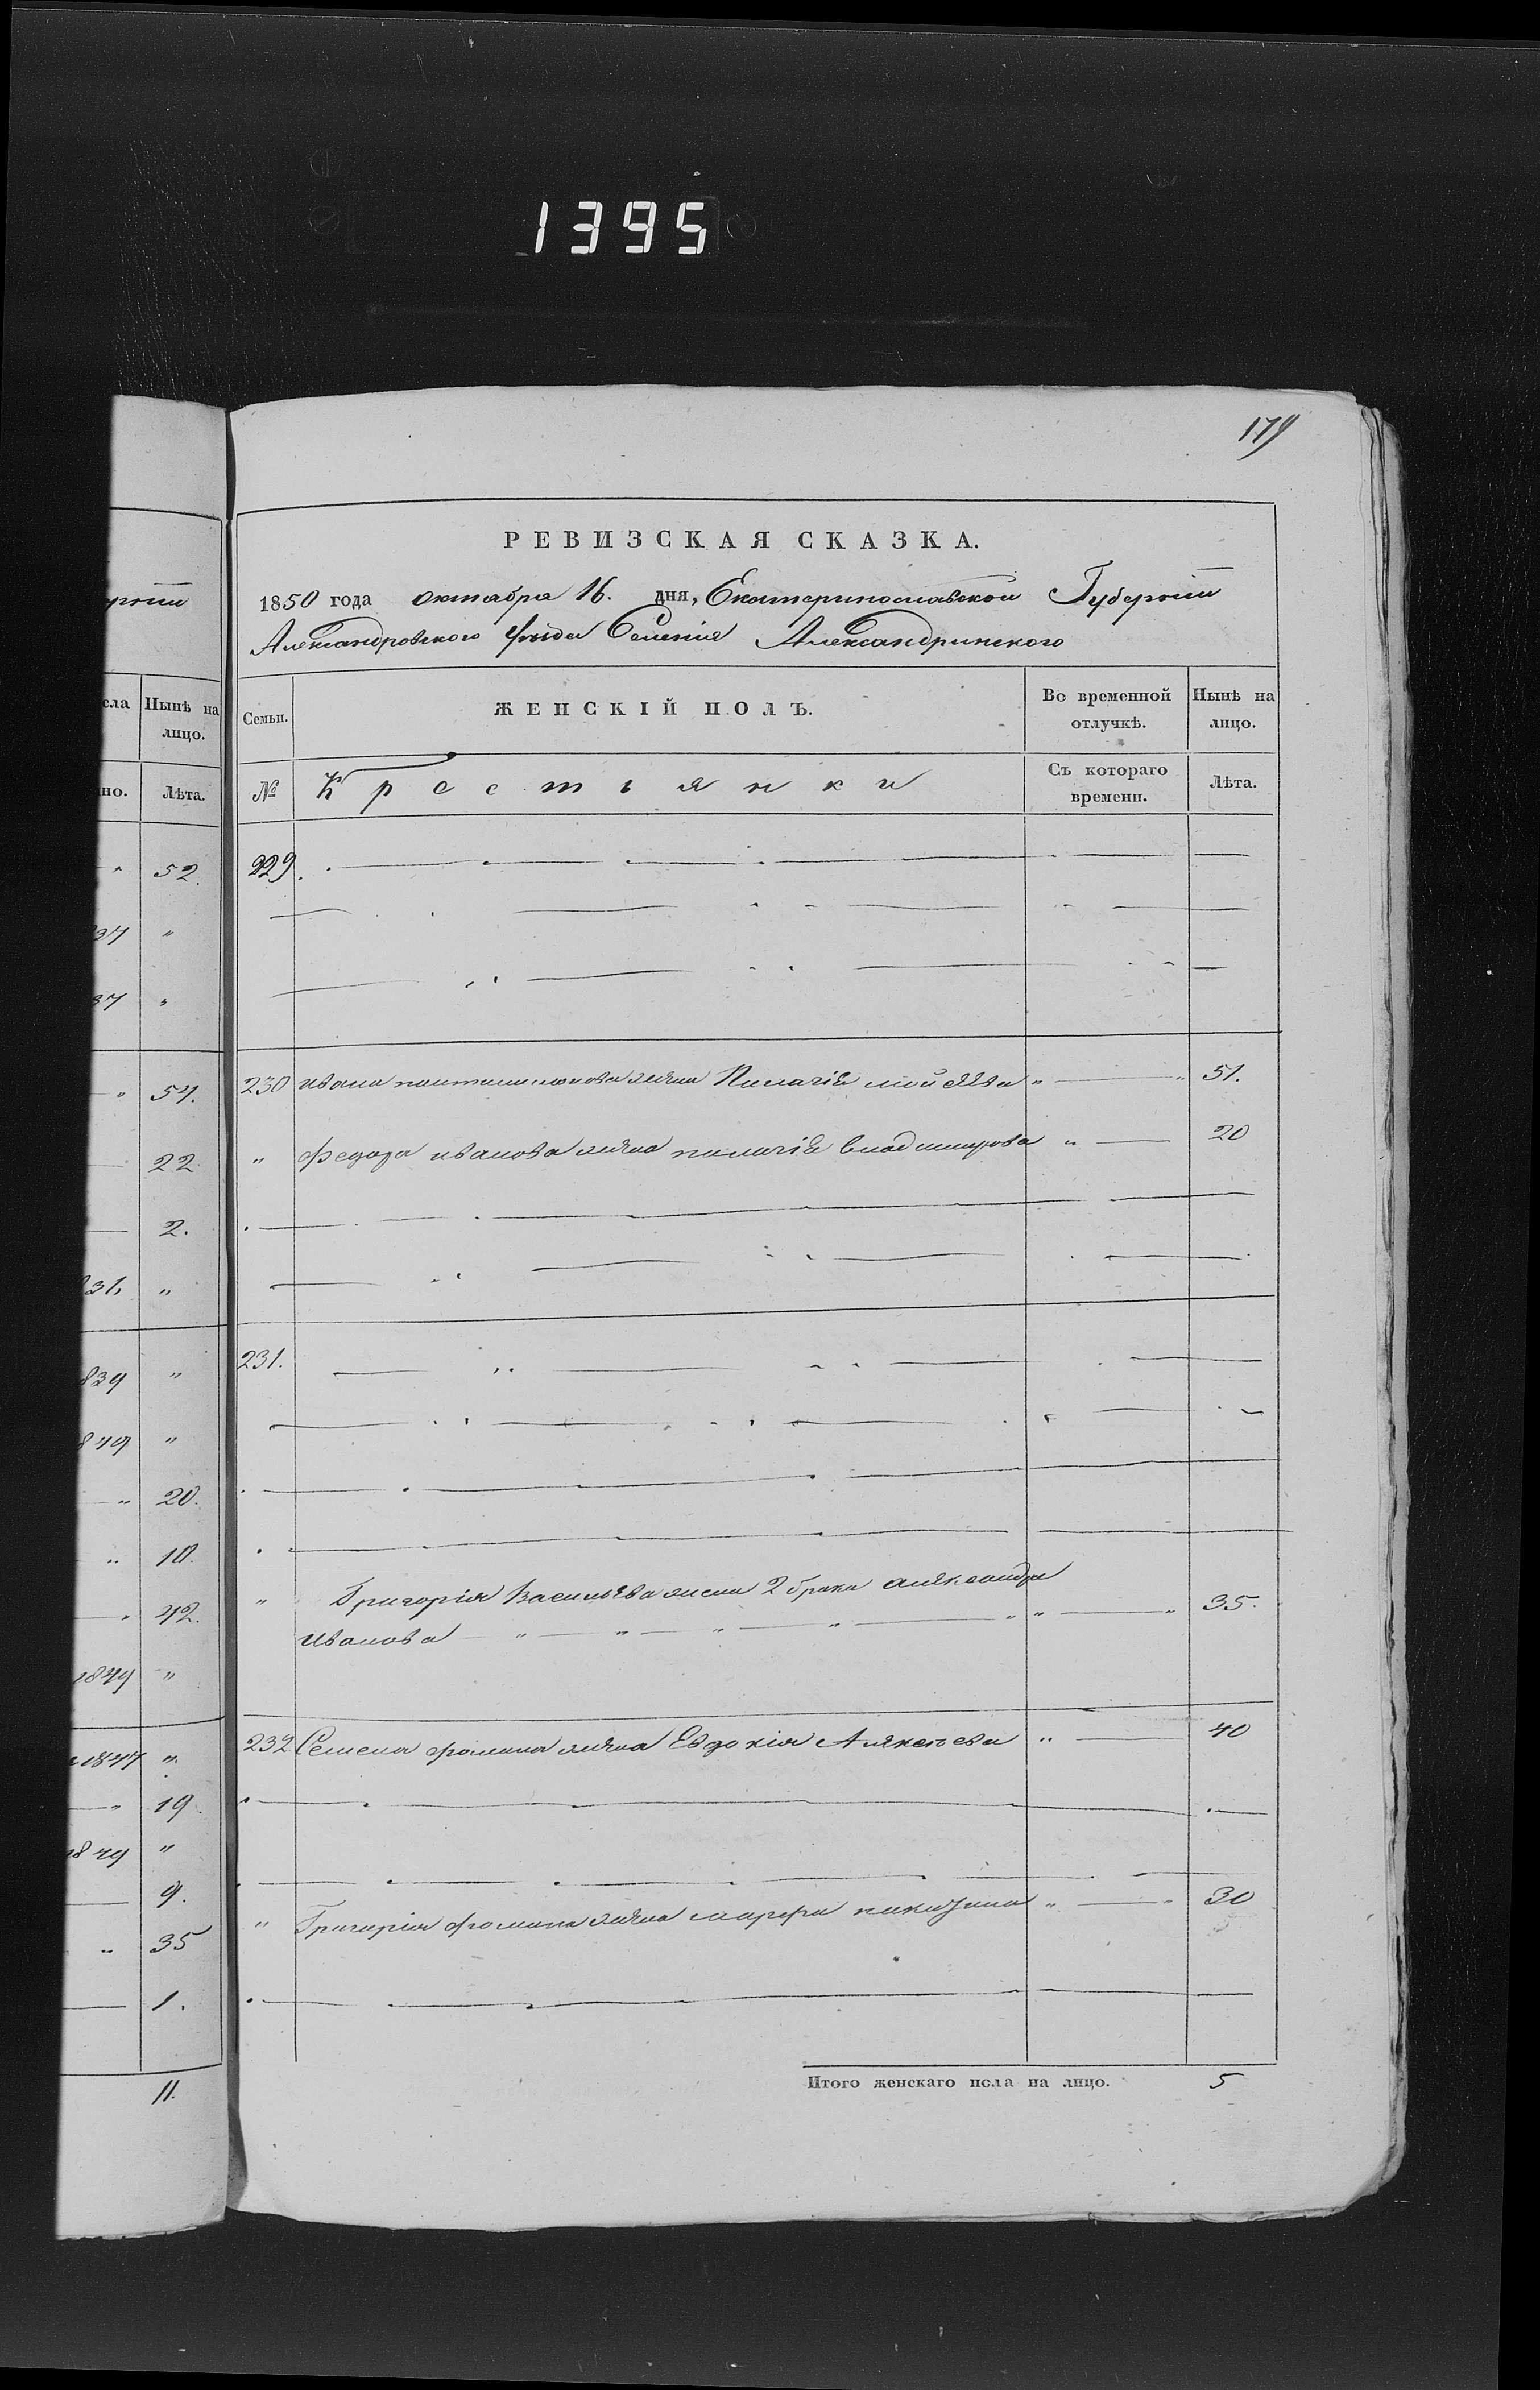 1395
179
РЕВИЗСКАЯ СКАЗКА.
1850 года октабра 16. дня, Екатеринославской Губернии
Александровского Уезда Селенія Александринского
сла Нынѣ на лицо.
но. Лѣта.
Семьи. ЖЕНСКІЙ ПОЛЪ. Во временной отлучкѣ. Нынѣ на лицо.
№ Крестьянки Съ котораго времени. Лѣта.
52. 229.
37 "
37 "
54. 230 Ивана жена Пилагіе 51.
22 " Федора иванова жена пилагіе владимирова " 20
2.
31. "
839 " 231.
849 "
20.
10.
42. " Григорія Васильева жена 2 брака аляксандра
Иванова " " " " " " 35.
1849 "
1847 " 232 Семена фомина жена Евдокія Аляксеева " 40
19
1849 "
9.
35 " Григорія фомина жена марфа " 30
1.
11.
Итого женскаго пола на лицо. 5